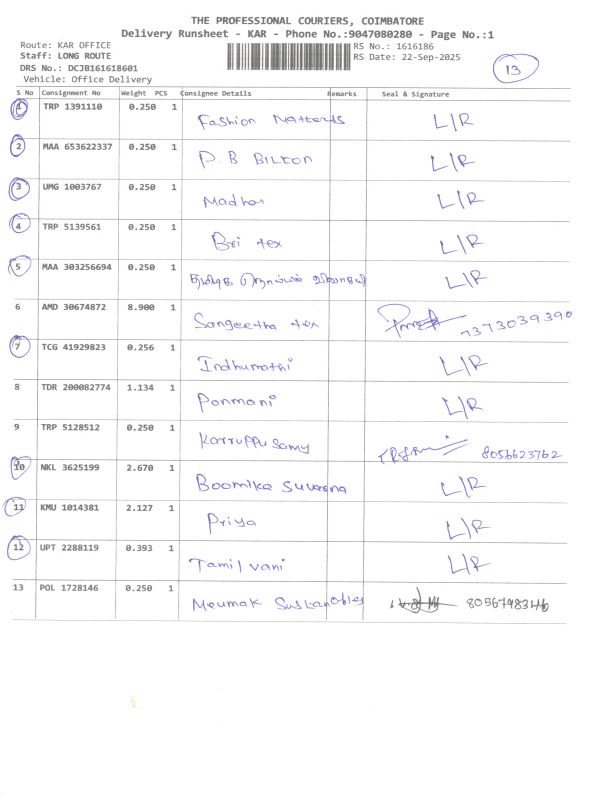 THE PROFESSIONAL COURIERS, COIMBATORE
Delivery Runsheet - KAR - Phone No.:9047080280 - Page No.:1
Route: KAR OFFICE RS No.: 1616186
Staff: LONG ROUTE RS Date: 22-Sep-2025
DRS No.: DCJB161618601 13
Vehicle: Office Delivery
S No Consignment No Weight PCS Consignee Details Remarks Seal & Signature
1 TRP 1391110 0.250 1 Fashion Matters L/R
2 MAA 653622337 0.250 1 P. B BILTON L/R
3 UMG 1003767 0.250 1 Madhan L/R
4 TRP 5139561 0.250 1 Bri tex L/R
5 MAA 303256694 0.250 1 L/R
6 AMD 30674872 8.900 1 Sangeetha tex 7373039390
7 TCG 41929823 0.256 1 Indhumathi L/R
8 TDR 200082774 1.134 1 Ponmani L/R
9 TRP 5128512 0.250 1 Karruppusamy 8056623762
10 NKL 3625199 2.670 1 Boomika Suvarna L/R
11 KMU 1014381 2.127 1 Priya L/R
12 UPT 2288119 0.393 1 Tamil vani L/R
13 POL 1728146 0.250 1 Meumak 8056798346